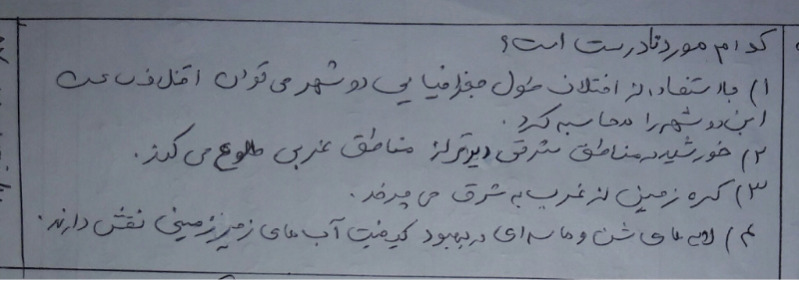 کدام مورد نادرست است؟
۱) با استفاده از اختلاف طول جغرافیایی دو شهر می توان اختلاف ساعت
این دو شهر را محاسبه کرد.
۲) خورشید در مناطق شرقی دیرتر از مناطق غربی طلوع می کند.
۳) کره زمین از غرب به شرق می چرخد.
۴) لایه های شن و ماسه ای در بهبود کیفیت آب های زیرزمینی نقش دارند.